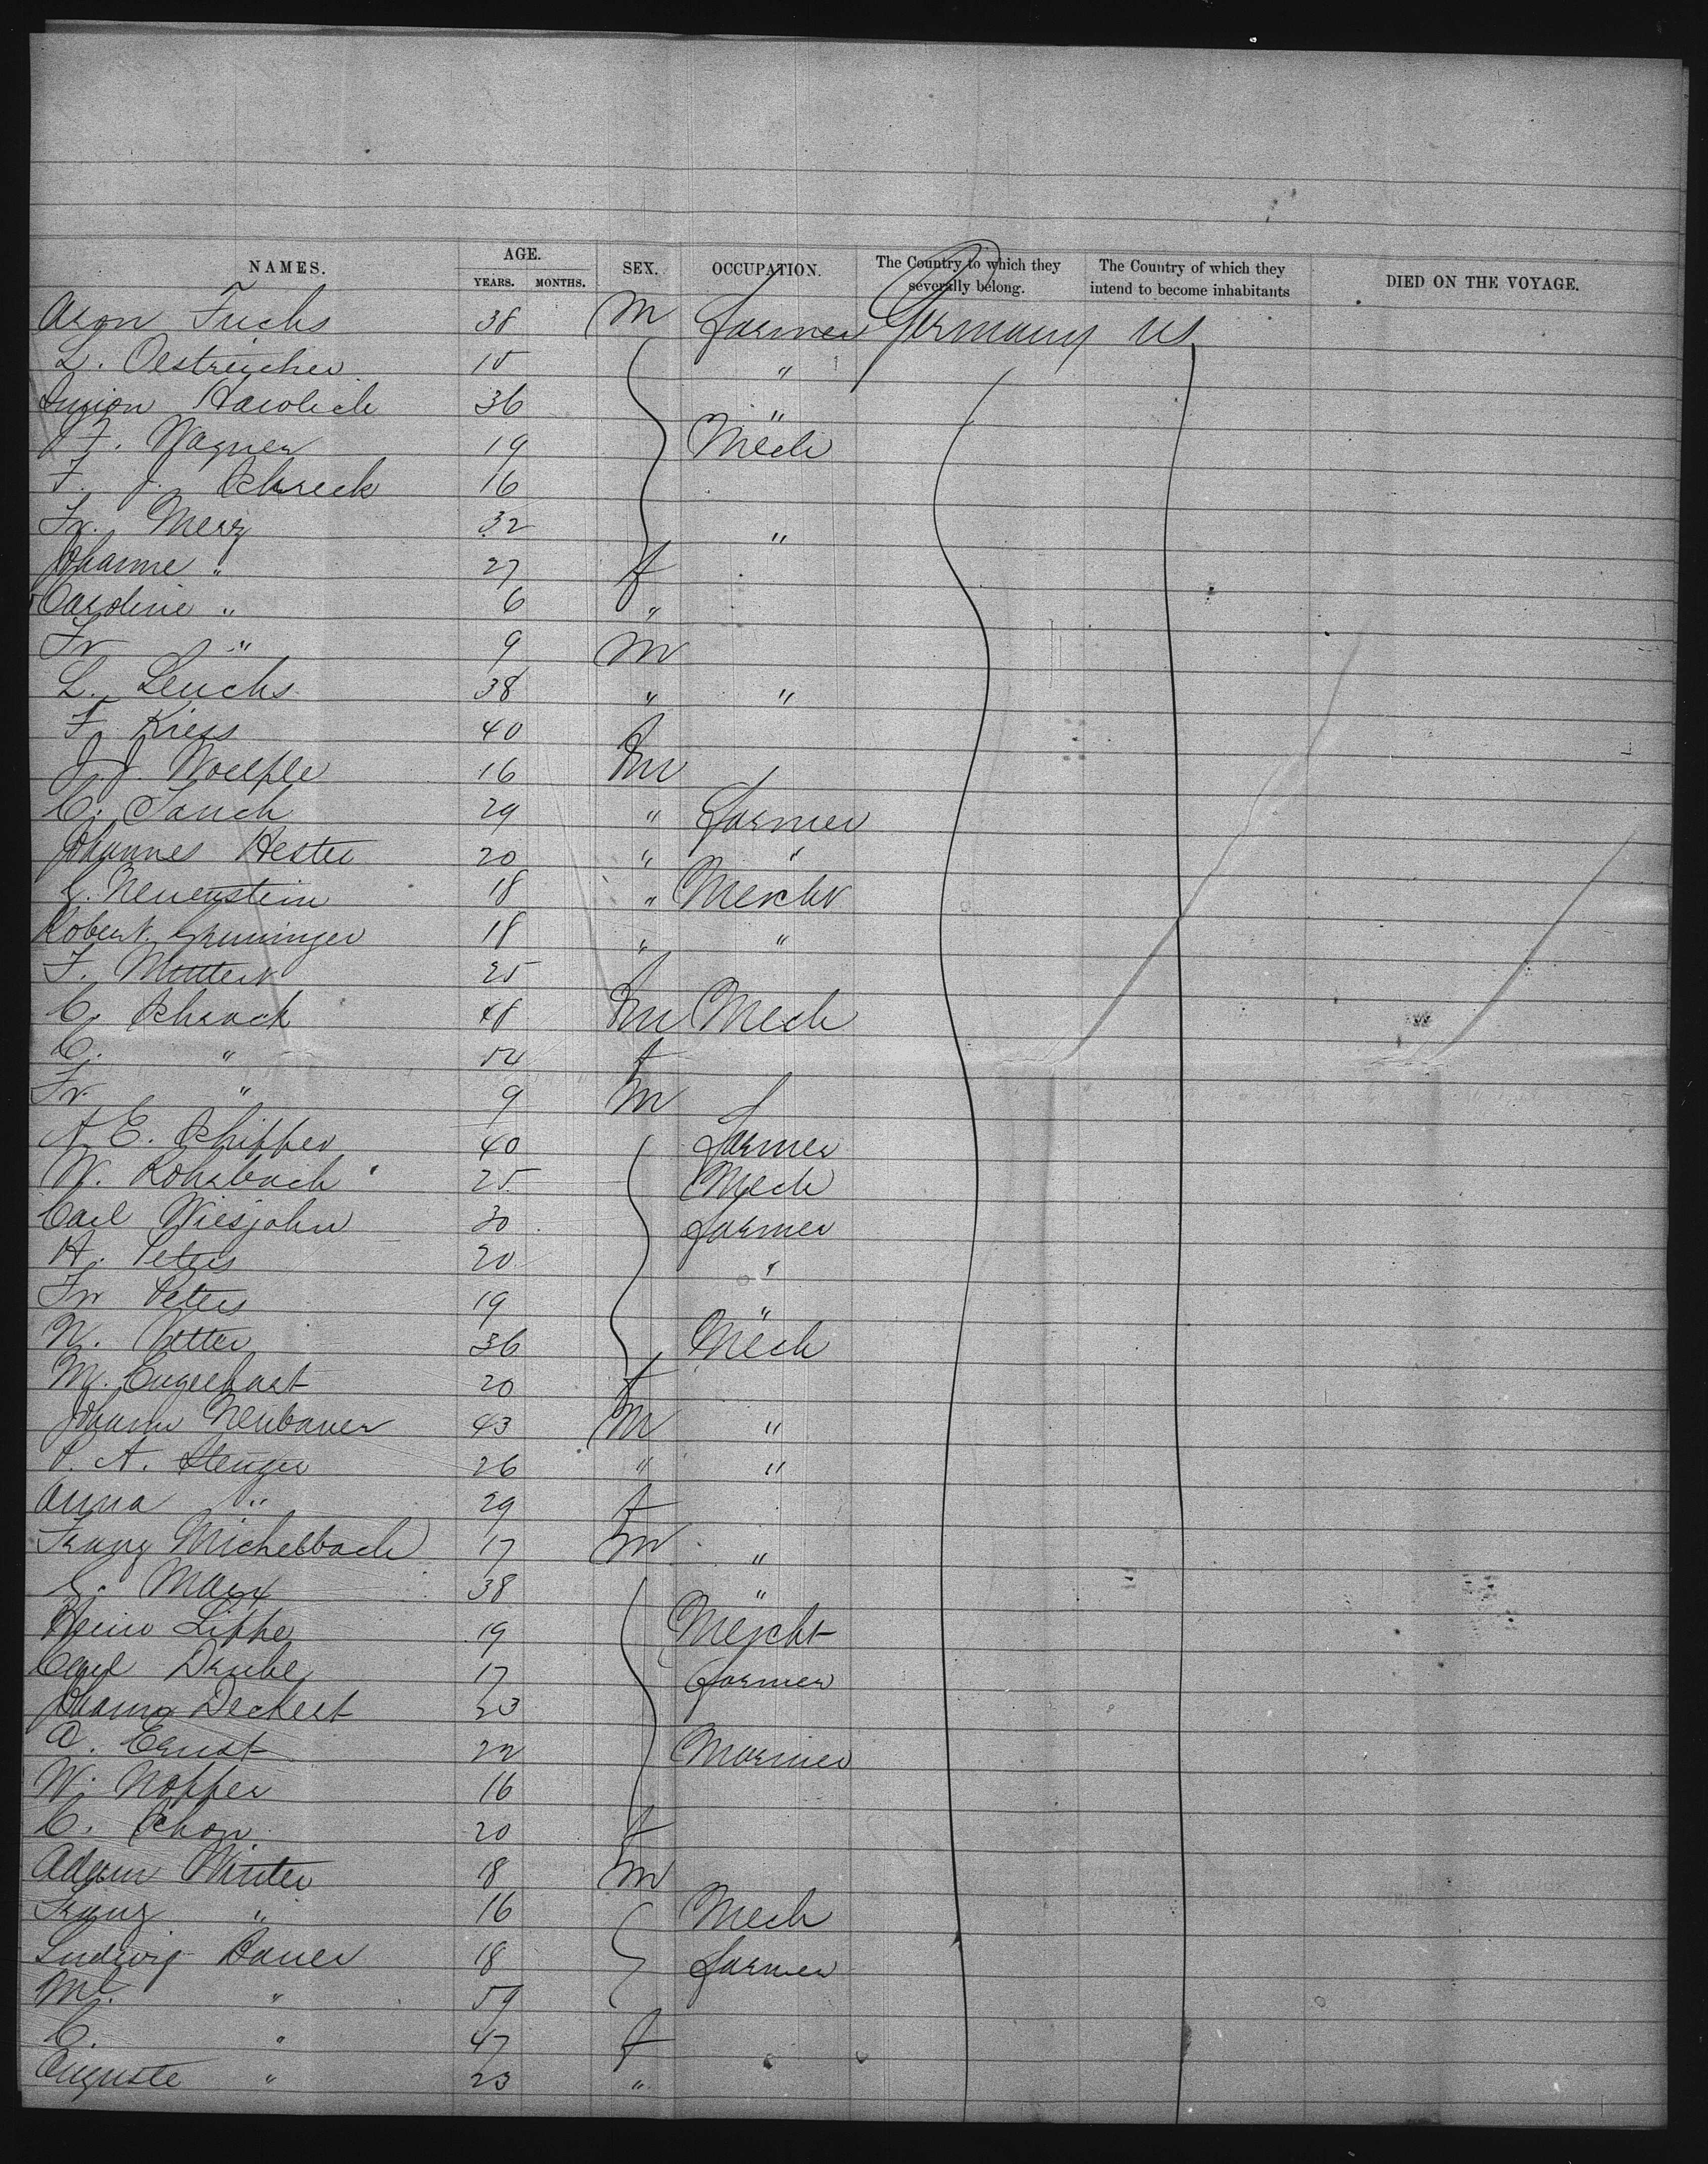 NAMES. AGE. YEARS. MONTHS. SEX. OCCUPATION. The Country to which they severally belong. The Country of which they intend to become inhabitants DIED ON THE VOYAGE.
Aron Fuchs 38 M Farmer Germany US
L. Oestreicher 15 "
36 "
F. Wagner 19 Mech
F. J. Schreck 16
Fr. Merz 32 "
Johanne " 27 f
Caroline " 6 "
Fr " 9 M
L. Leuchs 38 " "
F. Kiess 40 f
J. J. Woelfle 16 M
C. Jauch 29 " Farmer
Johannes Hester 20 " "
L. Neuenstein 18 " Mercht
Robert 18 " "
F. 25 f
C. Schrack 48 M Mech
C. " 54 f
Fr " 9 M
A. E. Schipper 40 Farmer
W. Rohrbach 25 Mech
Carl Wiesjahn 30 Farmer
H. Peters 20 "
Fr Peters 19 "
N. Vetter 36 Mech
M. Engelhart 20 f
Johann Neubauer 43 M "
P. A. Stenger 26 " "
Anna " 29 f
Franz Michelbach 17 M "
S. Marx 38 "
Heinr Lippe 19 Mercht
Carl Drube 17 Farmer
Johann Deckert 23
A. Ernst 22 Mariner
W. Nopper 16
C. Schon 20 f
Adam Winter 18 M
Franz " 16 Mech
Ludwig Bauer 18 Farmer
Mt. " 59
C. " 47 f
Auguste " 23 "